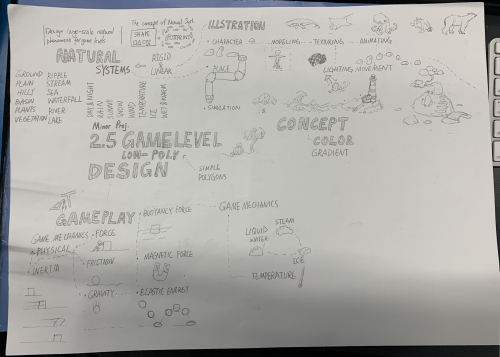 Design large-scale natural
phenomena for game levels
The concept of Natural Syst.
SHAPE
ILLSTRATION
CHARACTER
MODELING
TEXTURING
ANIMATING
NATURAL
SYSTEMS
RIGID
&
LINEAR
PLACE
LIGHTING MOVEMENT
SIMULATION
GROUND RIPPLE
PLAIN STREAM
HILLY SEA
BASIN WATERFALL
PLANTS RIVER
VEGETATION LAKE
DAY & NIGHT
RAIN
SUNNY
SNOW
WIND
TEMPERATURE
WET & WARM
Minor Proj.
2.5 GAME LEVEL
LOW-POLY
DESIGN
SIMPLE
POLYGONS
CONCEPT
COLOR
GRADIENT
GAMEPLAY
GAME MECHANICS
PHYSICAL
INERTIA
FORCE
FRICTION
GRAVITY
BUOYANCY FORCE
MAGNETIC FORCE
ELASTIC ENERGY
GAME MECHANICS
STEAM
LIQUID
WATER
ICE
TEMPERATURE